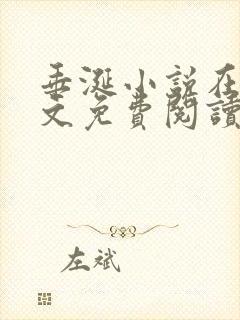 垂涎小说在
文免费阅读
左斌